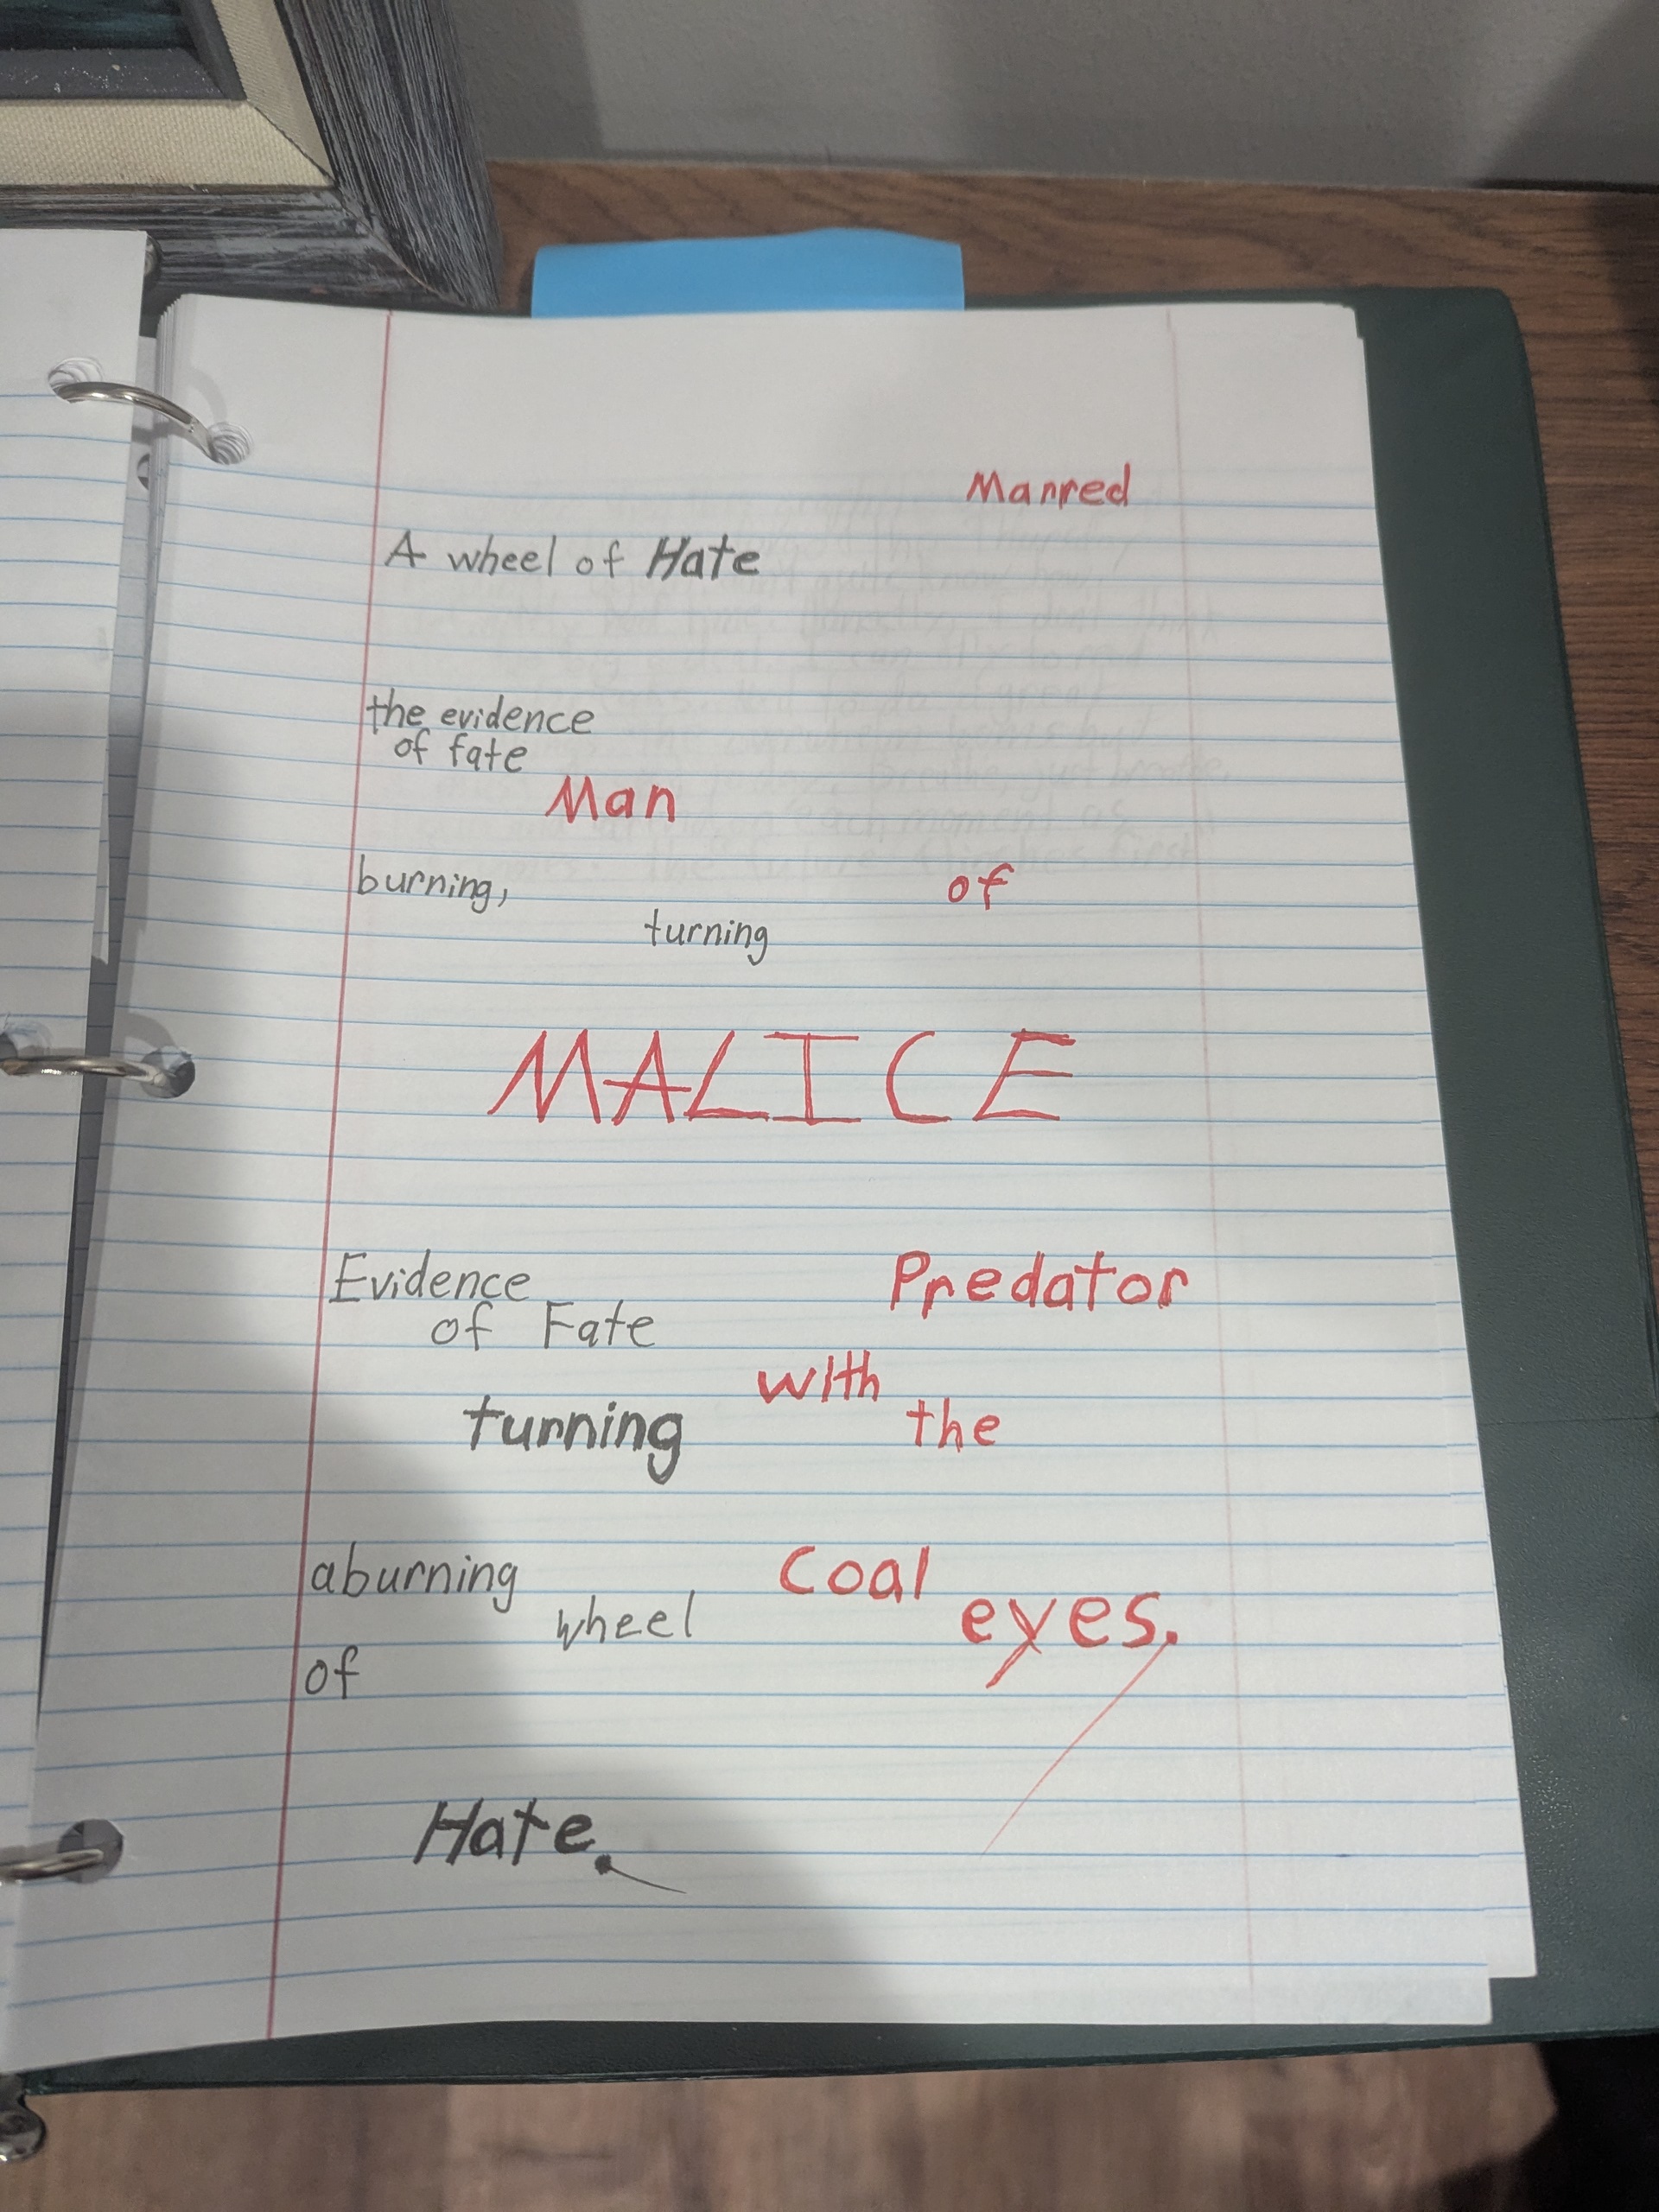 Manred
A wheel of Hate
the evidence
of fate
Man
burning, of
turning
MALICE
Evidence Predator
of Fate
with
turning the
aburning Coal
wheel eyes.
of
Hate.